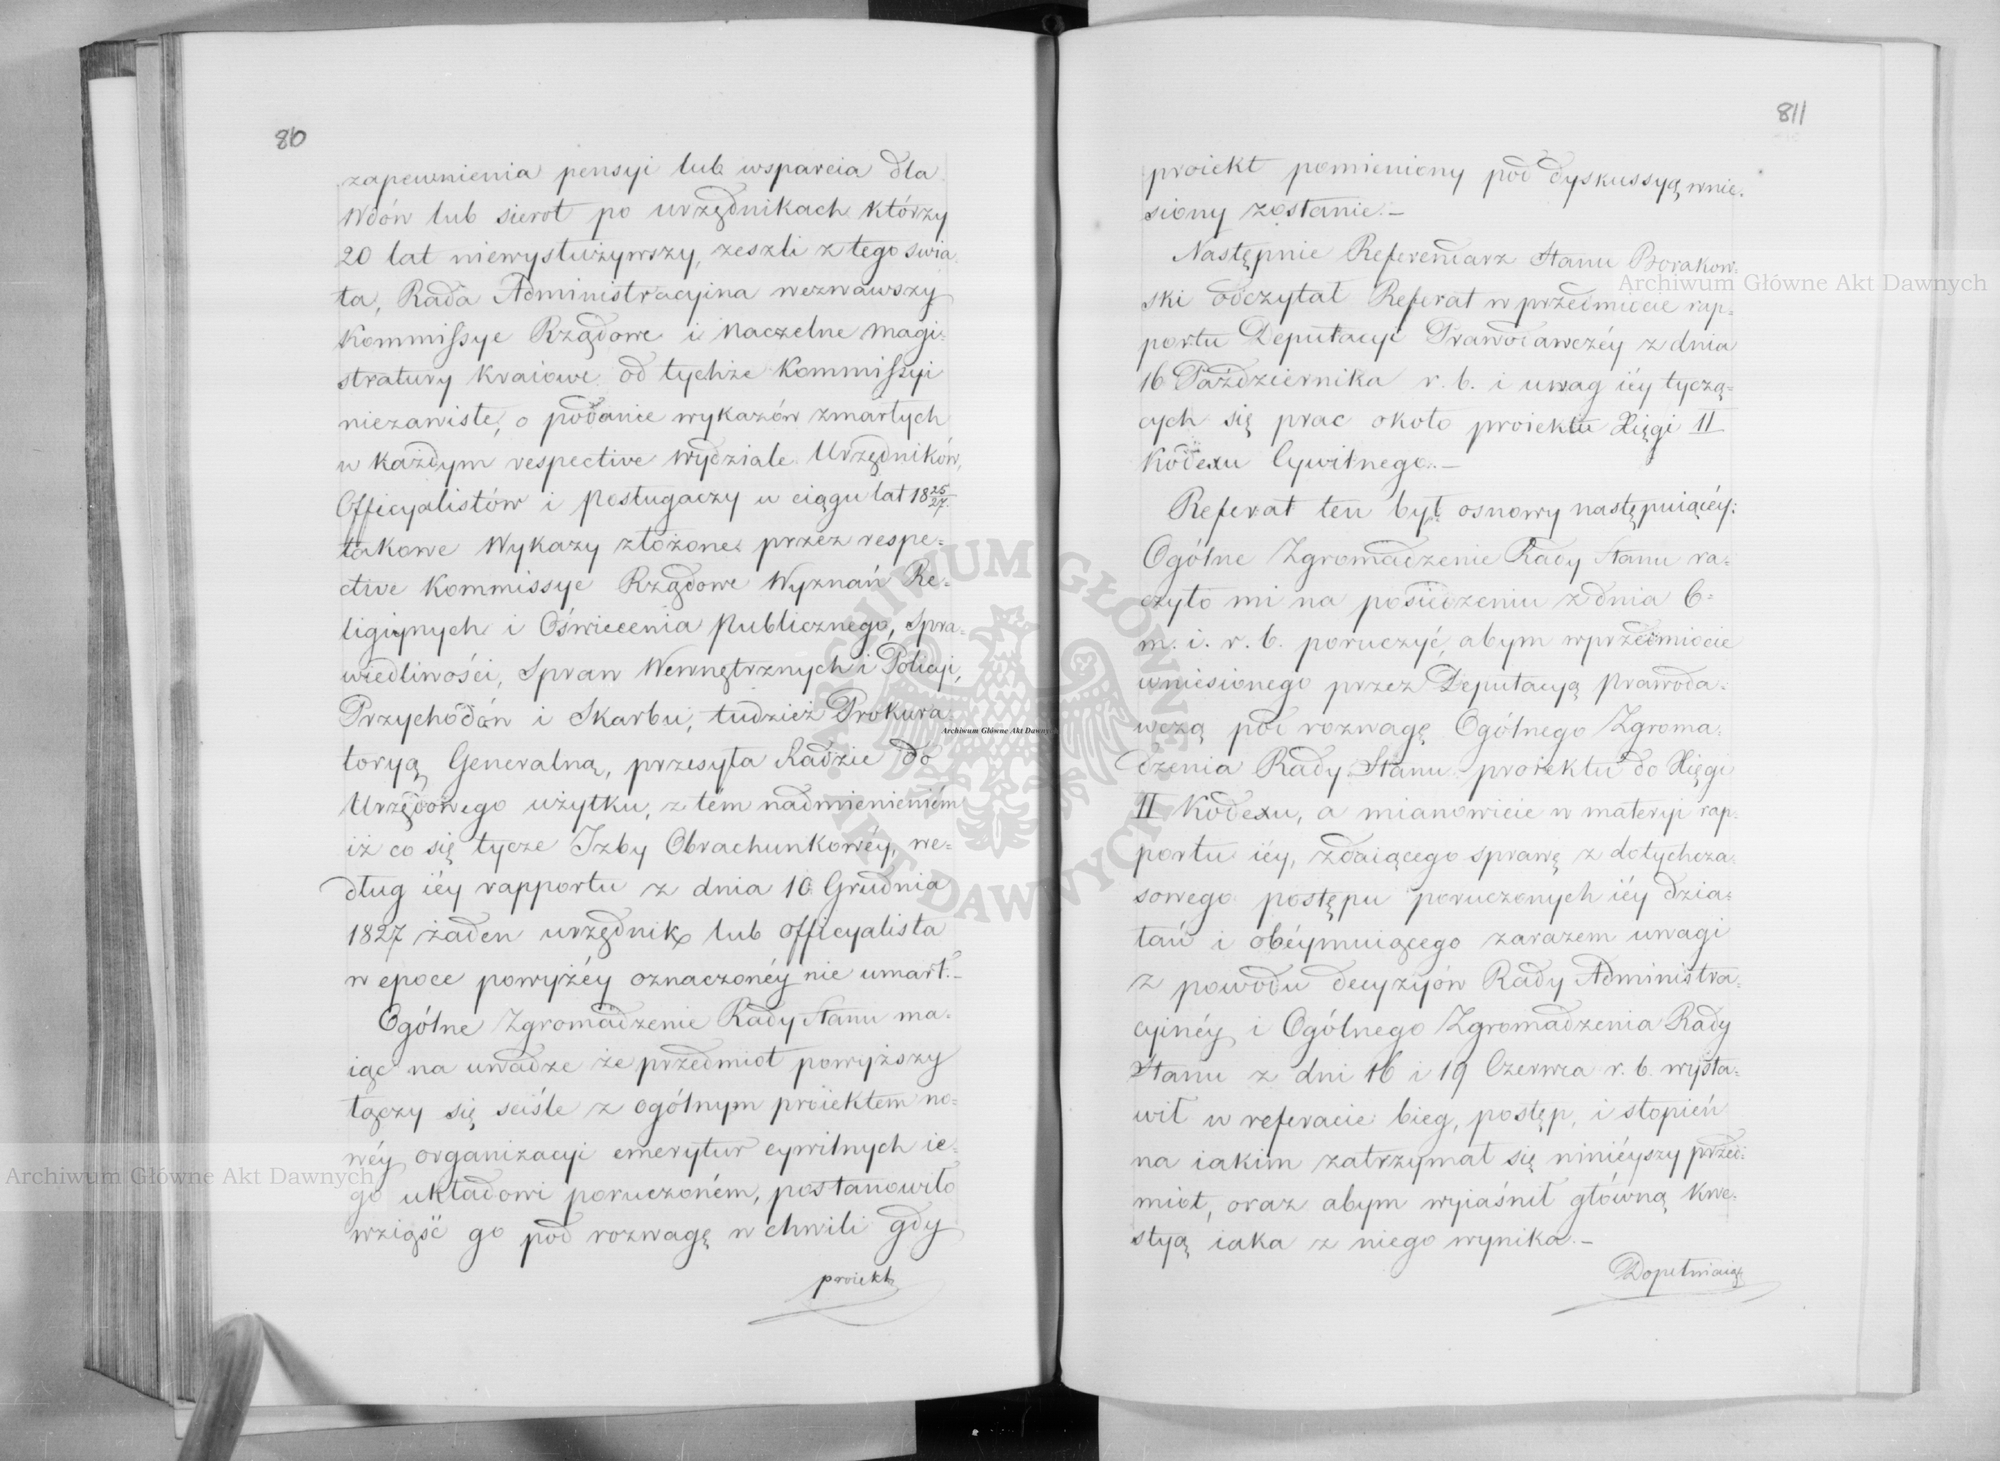 810
zapewnienia pensyi lub wsparcia dla
Wdów lub sierot po urzędnikach którzy
20 lat niewysłużywszy, zeszli z tego świa-
ta, Rada Administracyina wezwawszy
Kommissye Rządowe i Naczelne Magi-
stratury Kraiowe od tychże Kommissyi
niezawisłe, o podanie wykazów zmarłych
w każdym respective Wydziale Urzędników,
Officyalistów i Posługaczy w ciągu lat 18 25/27.
takowe Wykazy złożone przez respe-
ctive Kommissye Rządowe Wyznań Re-
ligiynych i Oświecenia Publicznego, Spra-
wiedliwości, Spraw Wewnętrznych i Policyi,
Przychodów i Skarbu, tudzież Prokura-
toryą Generalną, przesyła Radzie do
Urzędowego użytku, z tém nadmienieniém
iż co się tycze Izby Obrachunkowéy, we-
dług iéy rapportu z dnia 10 Grudnia
1827 żaden urzędnik lub officyalista
w epoce powyżéy oznaczonéy nie umarł.-
Ogólne Zgromadzenie Rady Stanu ma-
iąc na uwadze że przedmiot powyższy
łączy się ściśle z ogólnym proiektem no-
wéy organizacyi emerytur cywilnych ie-
go układowi poruczoném, postanowiło
wziąść go pod rozwagę w chwili gdy
proiekt
811
proiekt pomieniony pod dyskussyą wnie-
siony zostanie.-
Następnie Referendarz Stanu Borakow-
ski odczytał Referat w przedmiocie rap-
portu Deputacyi Prawodawczéy z dnia
16 Października r. b. i uwag iéy tyczą-
cych się prac około proiektu Xięgi II
Kodexu Cywilnego.-
Referat ten był osnowy następuiącéy:
Ogólne Zgromadzenie Rady Stanu ra-
czyło mi na posiedzeniu z dnia 6-
m. i. r. b. poruczyć, abym w przedmiocie
wniesionego przez Deputacyą Prawoda-
wczą pod rozwagę Ogólnego Zgroma-
dzenia Rady Stanu proiektu do Xięgi
II Kodexu, a mianowicie w materyi rap-
portu iéy, zdaiącego sprawę z dotychcza-
sowego postępu poruczonych iéy dzia-
łań i obéymuiącego zarazem uwagi
z powodu decyzyów Rady Administra-
cyinéy i Ogólnego Zgromadzenia Rady
Stanu z dni 16 i 19 Czerwca r. b. wysta-
wił w referacie bieg, postęp, i stopień
na iakim zatrzymał się ninieyszy przed-
miot, oraz abym wyiaśnił główną kwe-
styą iaka z niego wynika.-
Dopełniaiąc
Archiwum Główne Akt Dawnych
Archiwum Główne Akt Dawnych
Archiwum Główne Akt Dawnych
ARCHIWUM GŁÓWNE
AKT DAWNYCH